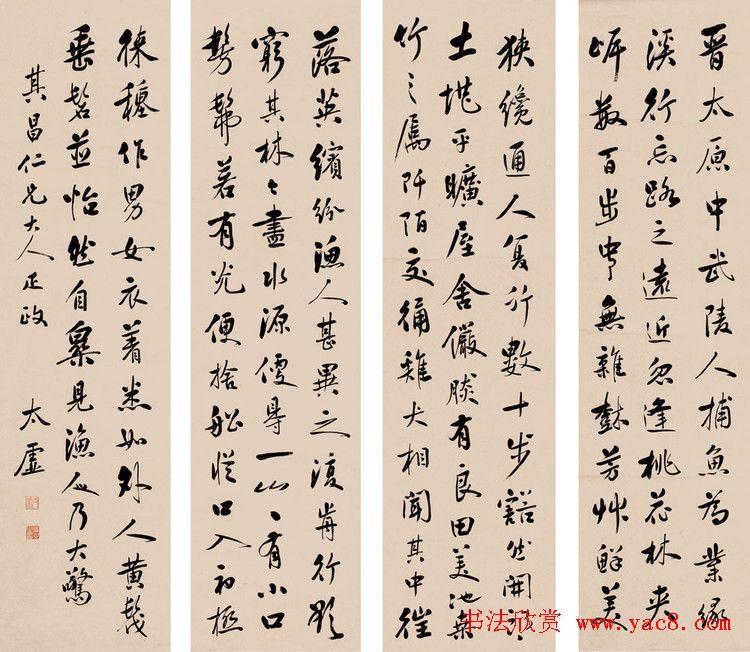 晉太原中武陵人捕魚為業緣
溪行忘路之遠近忽逢桃花林夾
岸數百步中無雜樹芳艸鮮美
狹纔通人復行數十步豁然開朗
土地平曠屋舍儼然有良田美池桑
竹之屬阡陌交通雞犬相聞其中徃
落英繽紛漁人甚異之復前行欲
窮其林〻盡水源便得一山〻有小口
髣髴若有光便捨船從口入初極
來種作男女衣着悉如外人黃髮
垂髫並怡然自樂見漁人乃大驚
其昌仁兄大人正政 太虛
书法欣赏 www.yac8.com